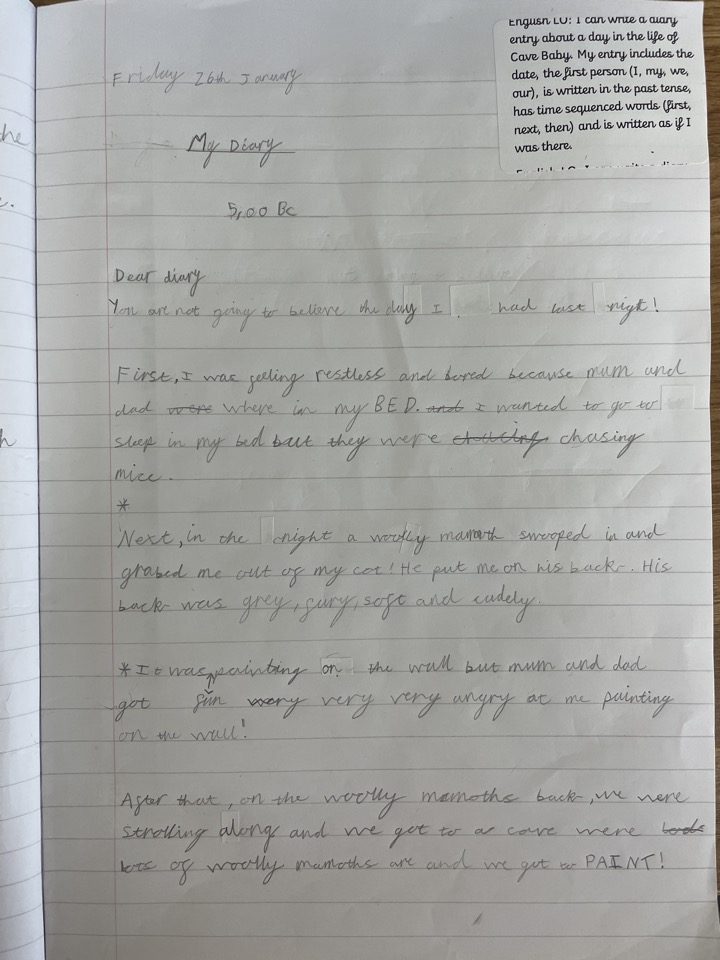 English LO: I can write a diary
entry about a day in the life of
Cave Baby. My entry includes the
date, the first person (I, my, we,
our), is written in the past tense,
has time sequenced words (first,
next, then) and is written as if I
was there.
Friday 26th January
My Diary
5,00 Bc
Dear diary
You are not going to believe the day I had last nigh!
First, I was feeling restless and bored because mum and
dad were where in my BED. and I wanted to go to
sleep in my bed but they were chasing
mice.
*
Next, in the night a woolly mamoth swooped in and
grabed me out of my cot! He put me on his back. His
back was grey, fury, soft and cudely.
* It was painting on the wall but mum and dad
fun
got very very very angry at me painting
on the wall!
After that, on the woolly mamoths back, we were
strolling along and we got to a cave were
lots of woolly mamoths are and we got to PAINT!